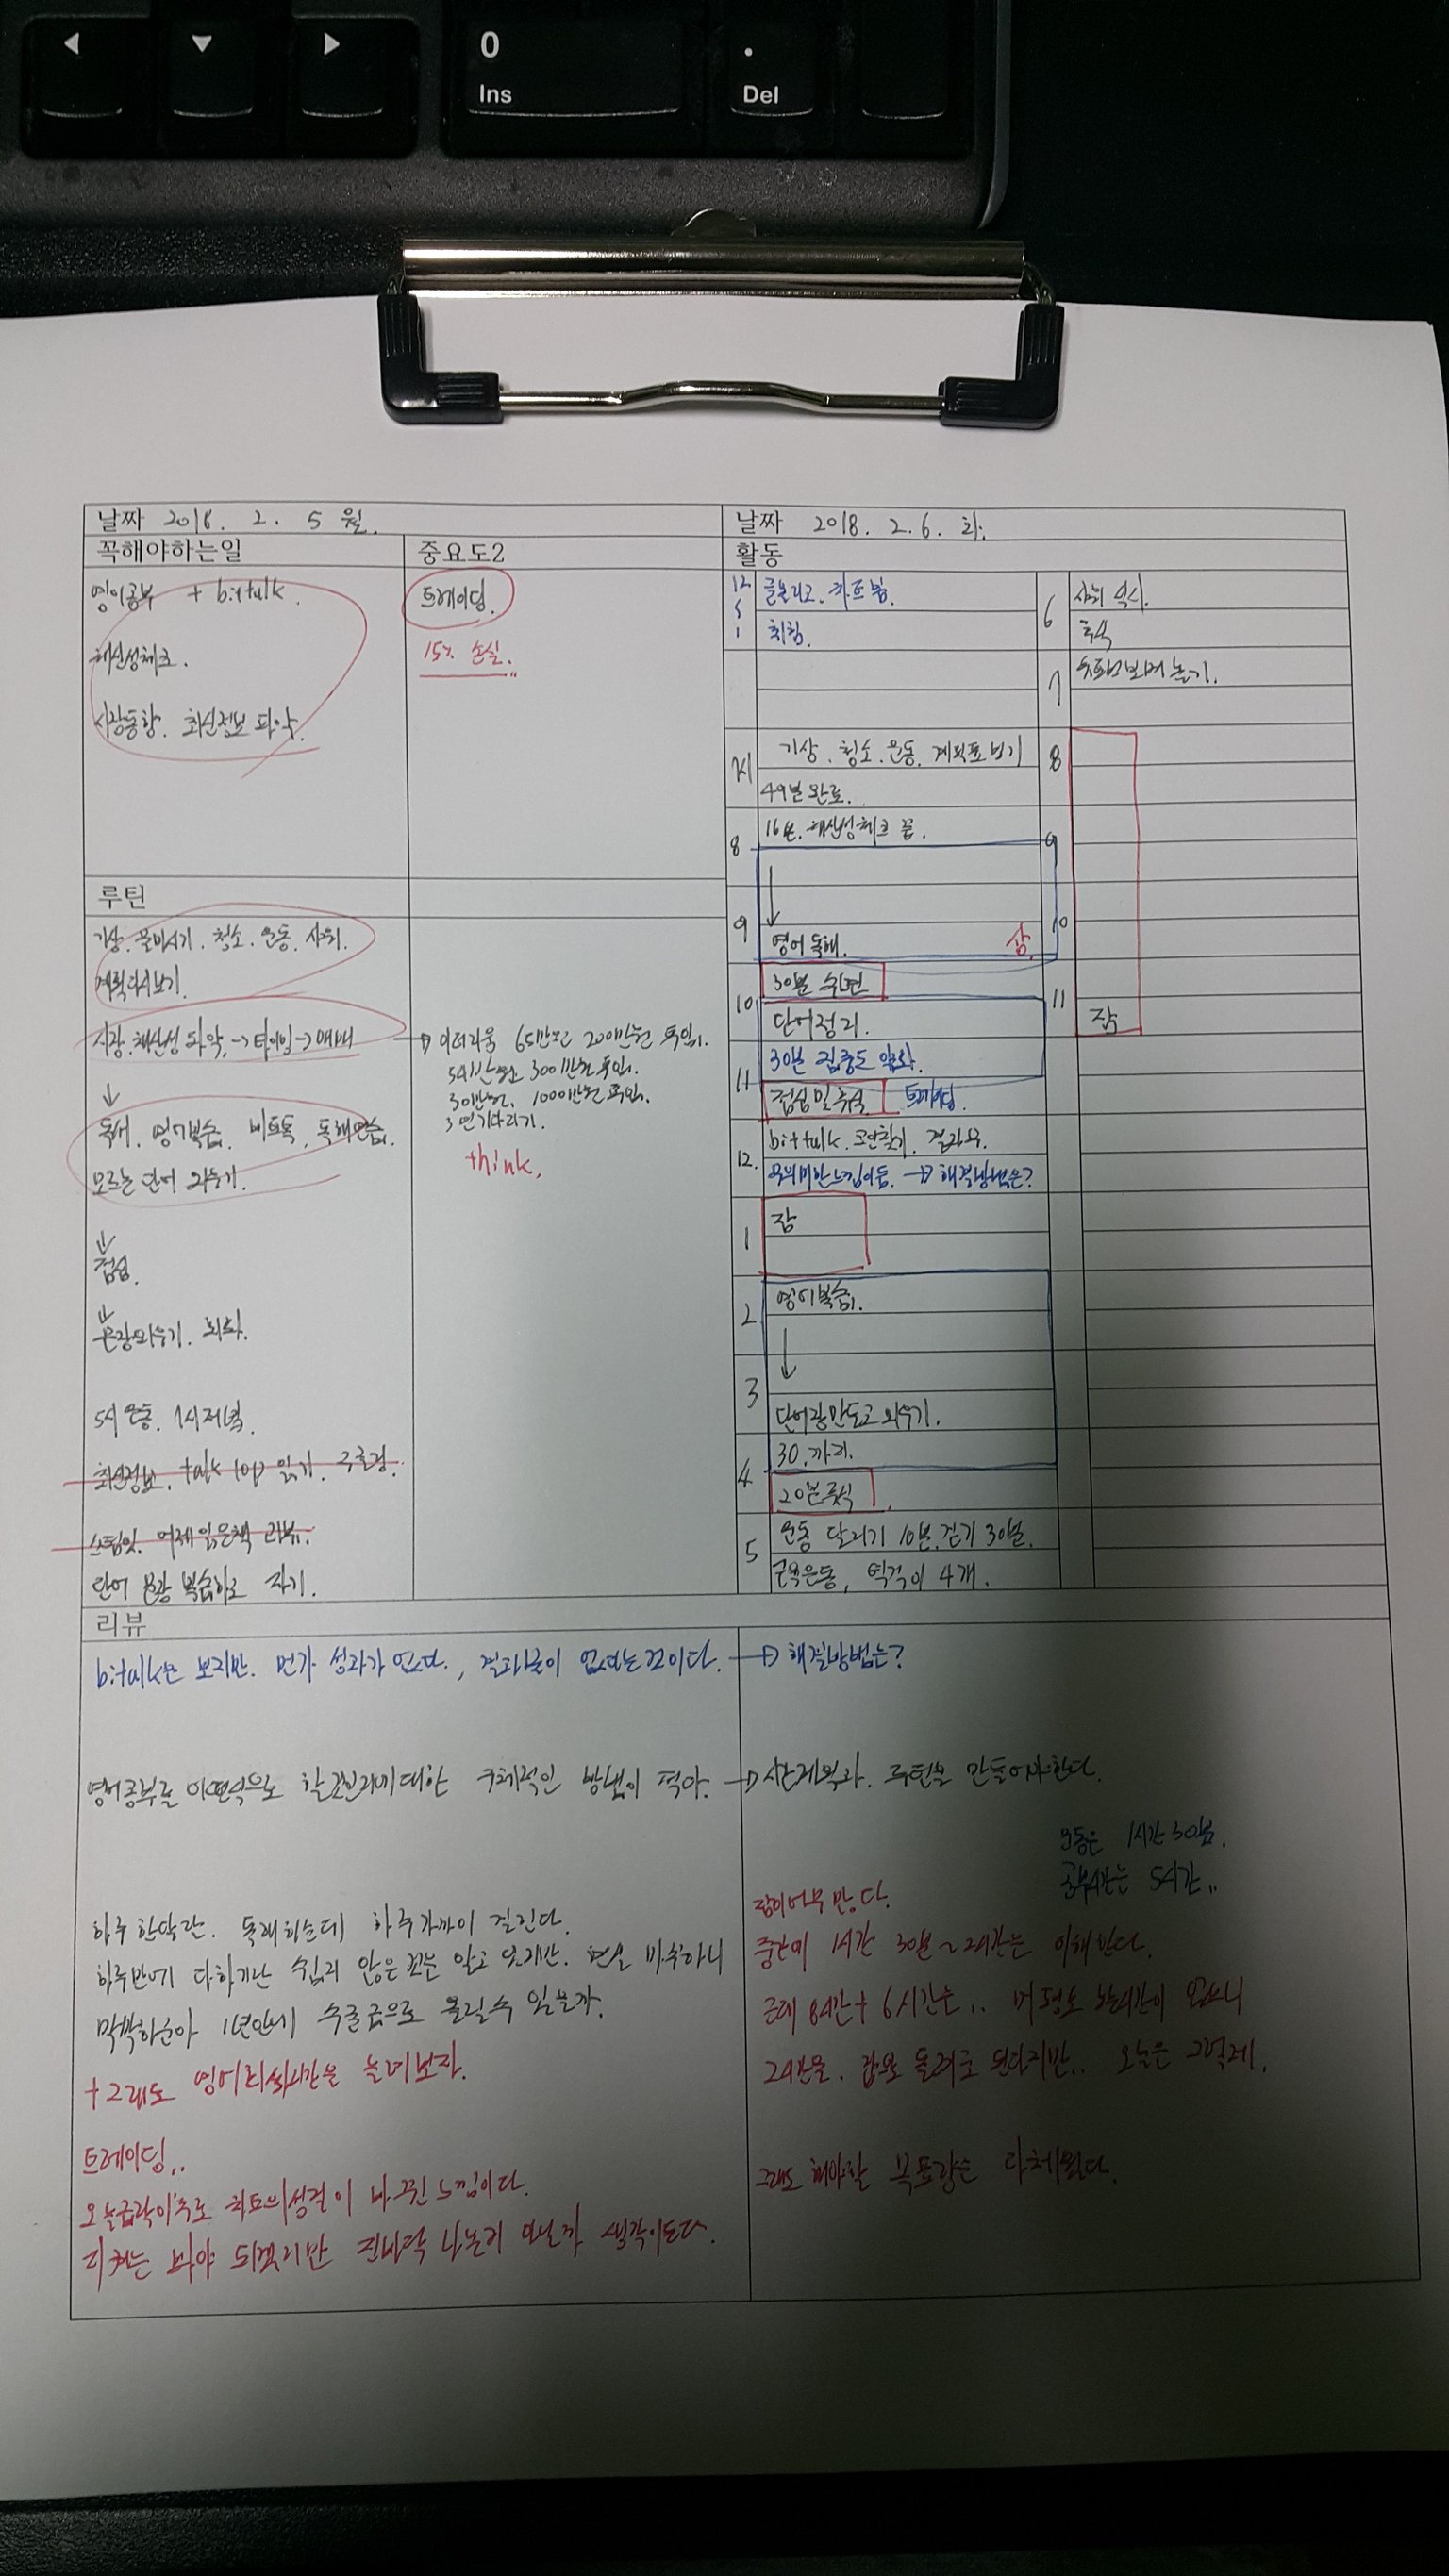 0
Ins
.
Del
날짜 2018. 2. 5 월.
날짜 2018. 2. 6. 화.
꼭해야하는일
중요도2
활동
영어공부 + bittalk.
채산성체크.
시장동향. 최신정보 파악.
트레이딩.
15% 손실.
루틴
기상. 물마시기. 청소. 운동. 샤워.
계획다시보기.
시장. 채산성 파악. -> 타이밍 -> 매매
이더리움 65만원 200만원 투입.
54만원 300만원 투입.
30만원. 1000만원 투입.
3연기다리기.
think.
독서. 영어복습. 비트톡, 독해연습.
모르는 단어 외우기.
점심.
문장외우기. 회화.
5시 운동. 1시 저녁.
최신정보. talk top 읽기.
스팀잇. 어제읽은책 리뷰.
단어 문장 복습하고 자기.
12
1
글올리고. 차트 봄.
취침.
기상. 청소. 운동. 계획표 보기
49분 완료.
8
16분. 채산성체크 끝.
9
영어 독해.
10
30분 수면
단어정리.
11
30분 집중도 약화.
점심 및 휴식. 트레이딩.
12.
bittalk. 코인찾기.
무의미한느낌이듬. -> 해결방법은?
1
잠
2
영어복습.
3
단어장만들고 외우기.
30.까지.
4
20분휴식
5
운동 달리기 10분. 걷기 30분.
근육운동, 턱걸이 4개.
6
샤워 식사.
휴식
7
유튜브보며 놀기.
8
9
10
11
잠
리뷰
bitalk만 보지만. 먼가 성과가 없다., 결과물이 없다는것이다. -> 해결방법은?
영어공부를 어떤식으로 할것인지에대한 구체적인 방법이 적어. -> 시간계획과. 루틴을 만들어야한다.
운동은 1시간 30분.
공부시간은 5시간..
하루 한단락. 독해하는데 하루가까이 걸린다.
하루만에 다하기란 쉽지 않은 것은 알고 있지만. 현실 마주하니
막막하구나 1년안에 수준급으로 올릴수 있을까.
+ 그래도 영어회화시간을 늘려보자.
트레이딩..
오늘급락이후로 차트의성격이 바뀐 느낌이다.
지켜는 봐야 되겠지만 진바닥 나온게 아닐까 생각이든다.
잠이너무 많다.
중간에 1시간 30분~2시간은 이해한다.
근데 8시간+6시간은..
24시간을. 오늘은 그렇게.
그래도 해야할 목표량은 다채웠다.